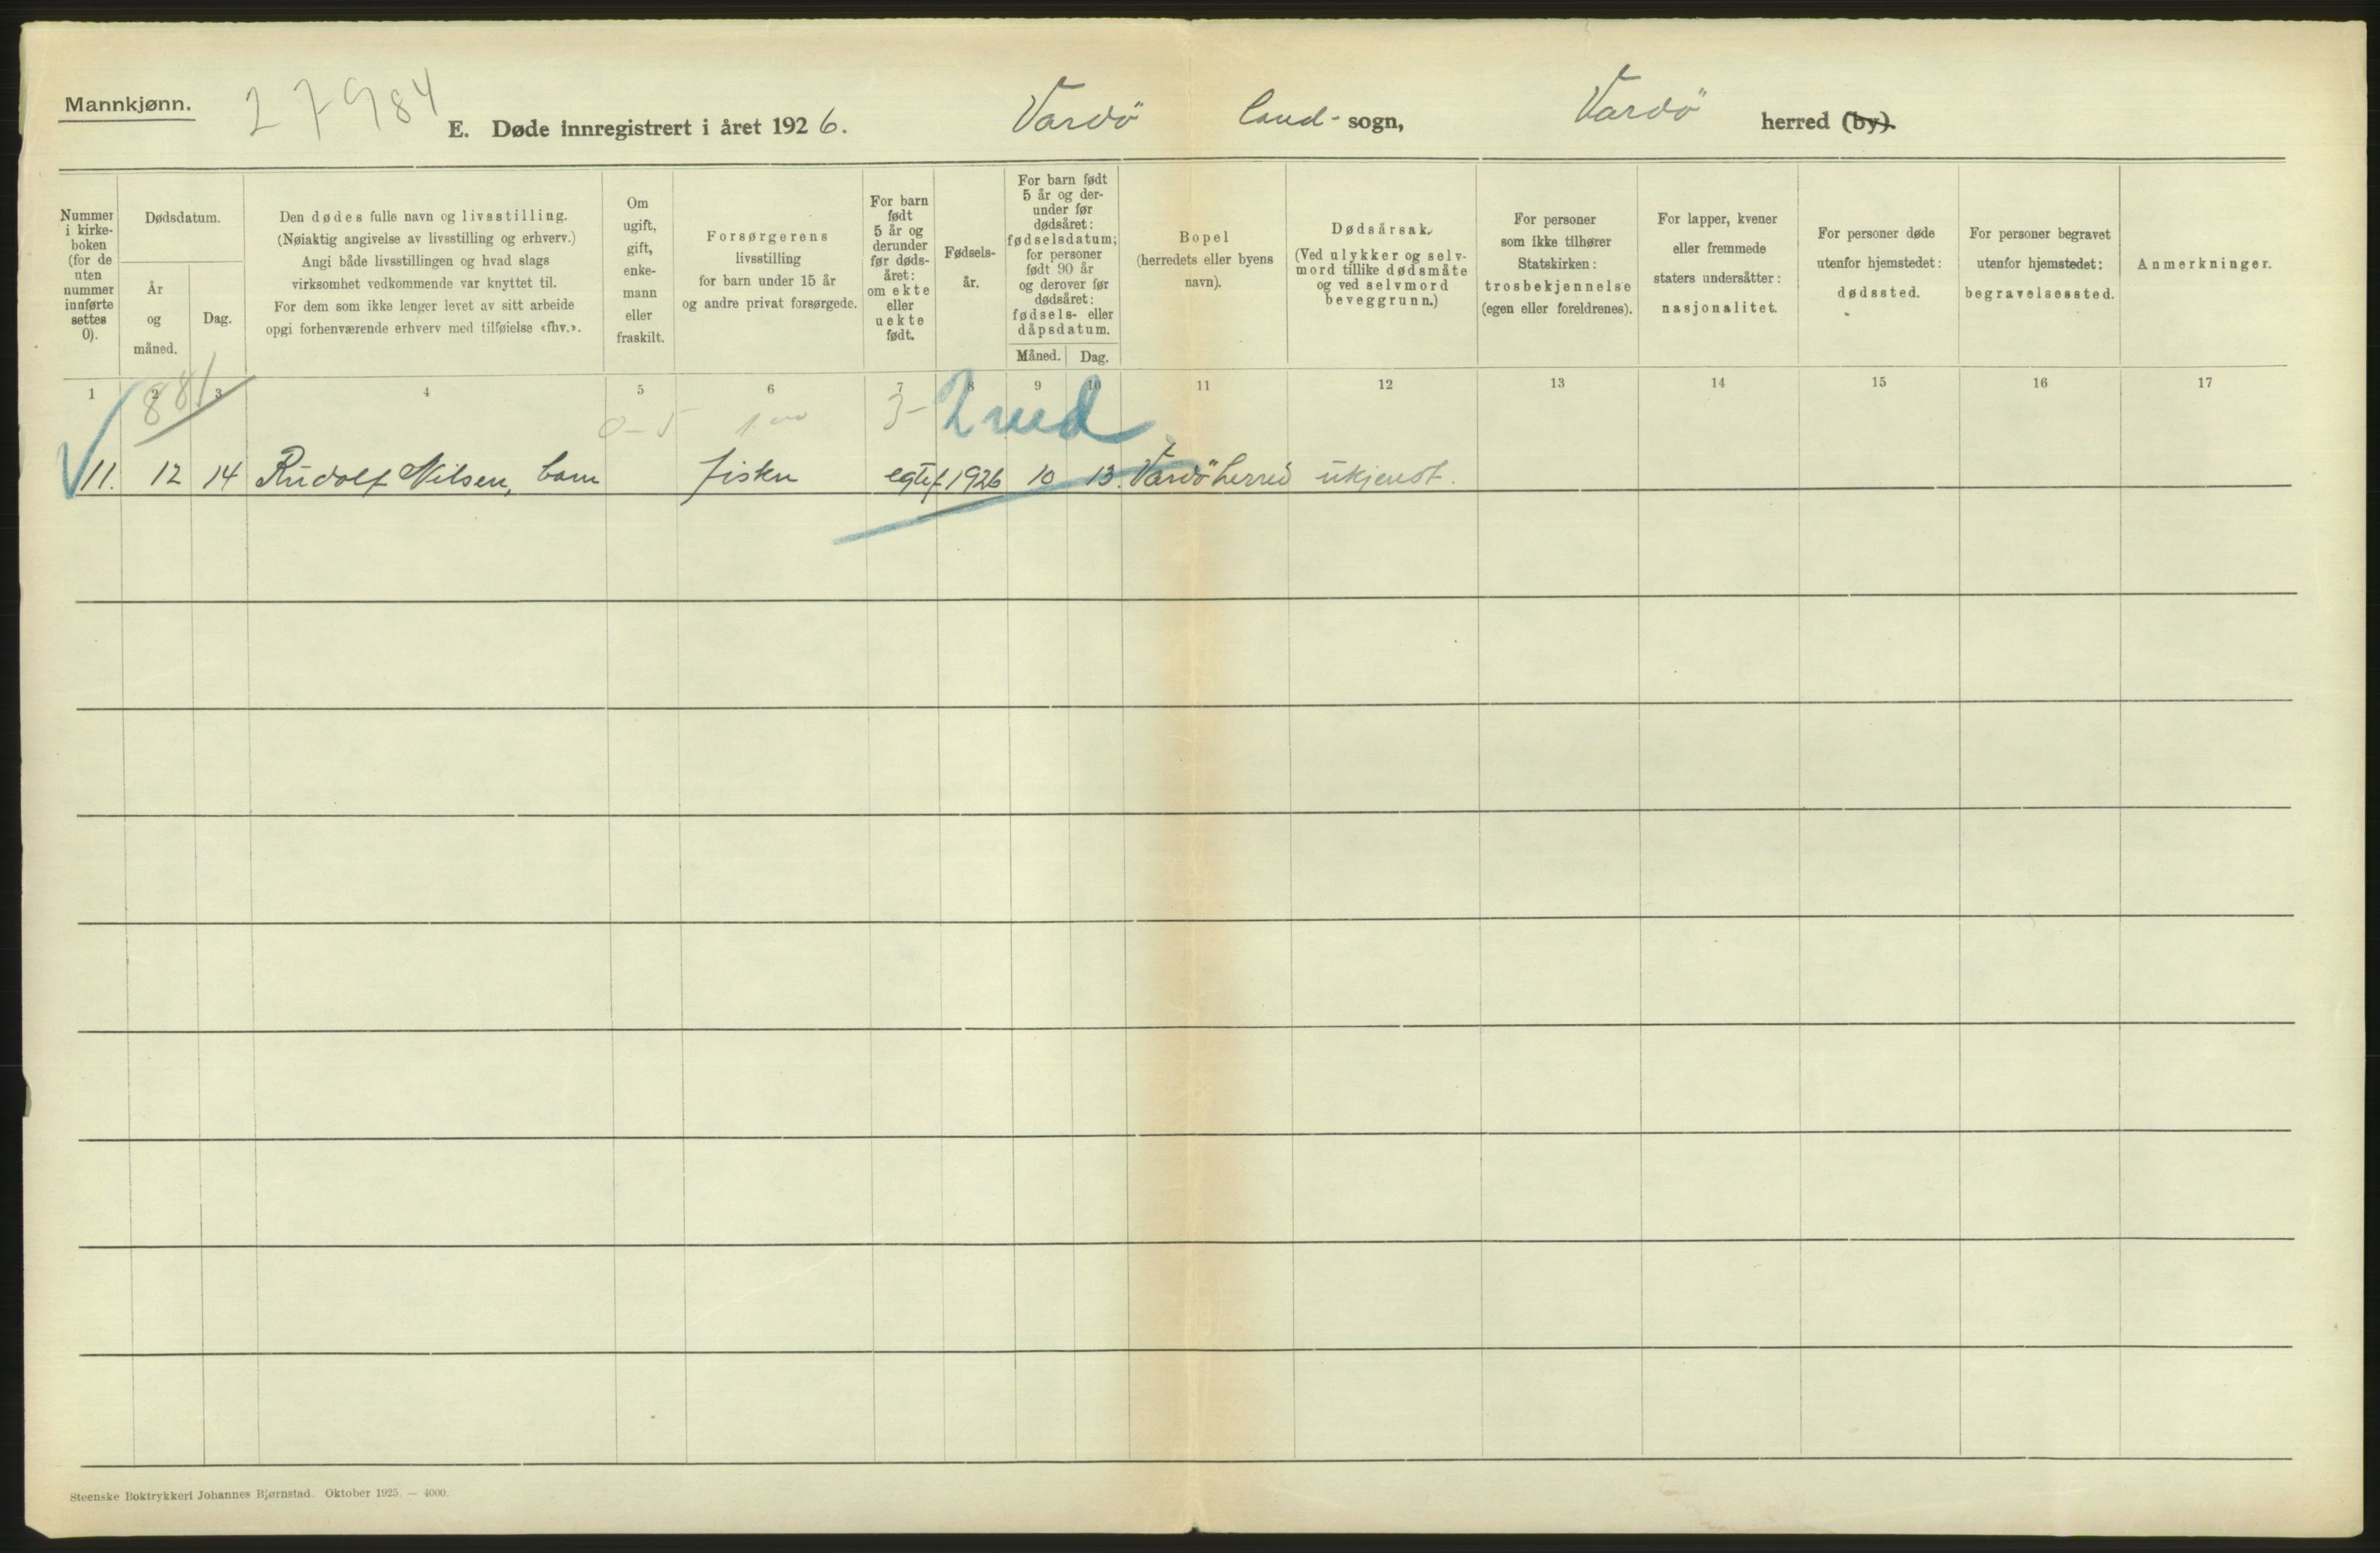 Mannkjønn.
27984
E. Døde innregistrert i året 1926.
Vardö land- sogn,
Vardö herred (by).
Nummer i kirke-boken (for de uten nummer innførte settes 0).
Dødsdatum.
År og måned.
Dag.
Den dødes fulle navn og livsstilling.
(Nøiaktig angivelse av livsstilling og erhverv.)
Angi både livsstillingen og hvad slags
virksomhet vedkommende var knyttet til.
For dem som ikke lenger levet av sitt arbeide
opgi forhenværende erhverv med tilføielse «fhv.».
Om ugift, gift, enke-mann eller fraskilt.
Forsørgerens
livsstilling
for barn under 15 år
og andre privat forsørgede.
For barn født 5 år og derunder før døds-året: om ekte eller uekte født.
Fødsels-år.
For barn født 5 år og der-under før dødsåret: fødselsdatum; for personer født 90 år og derover før dødsåret: fødsels- eller dåpsdatum.
Måned.
Dag.
Bopel
(herredets eller byens
navn).
Dødsårsak.
(Ved ulykker og selv-
mord tillike dødsmåte
og ved selvmord
beveggrunn.)
For personer
som ikke tilhører
Statskirken:
trosbekjennelse
(egen eller foreldrenes).
For lapper, kvener
eller fremmede
staters undersåtter:
nasjonalitet.
For personer døde
utenfor hjemstedet:
dødssted.
For personer begravet
utenfor hjemstedet:
begravelsessted.
Anmerkninger.
1 2 3 4 5 6 7 8 9 10 11 12 13 14 15 16 17
881
0-5 100 3- 2 md
11. 12 14 Rudolf Nilsen, barn fisker egtef 1926 10 13. Vardö herred ukjendt.
Steenske Boktrykkeri Johannes Bjørnstad. Oktober 1925. — 4000.